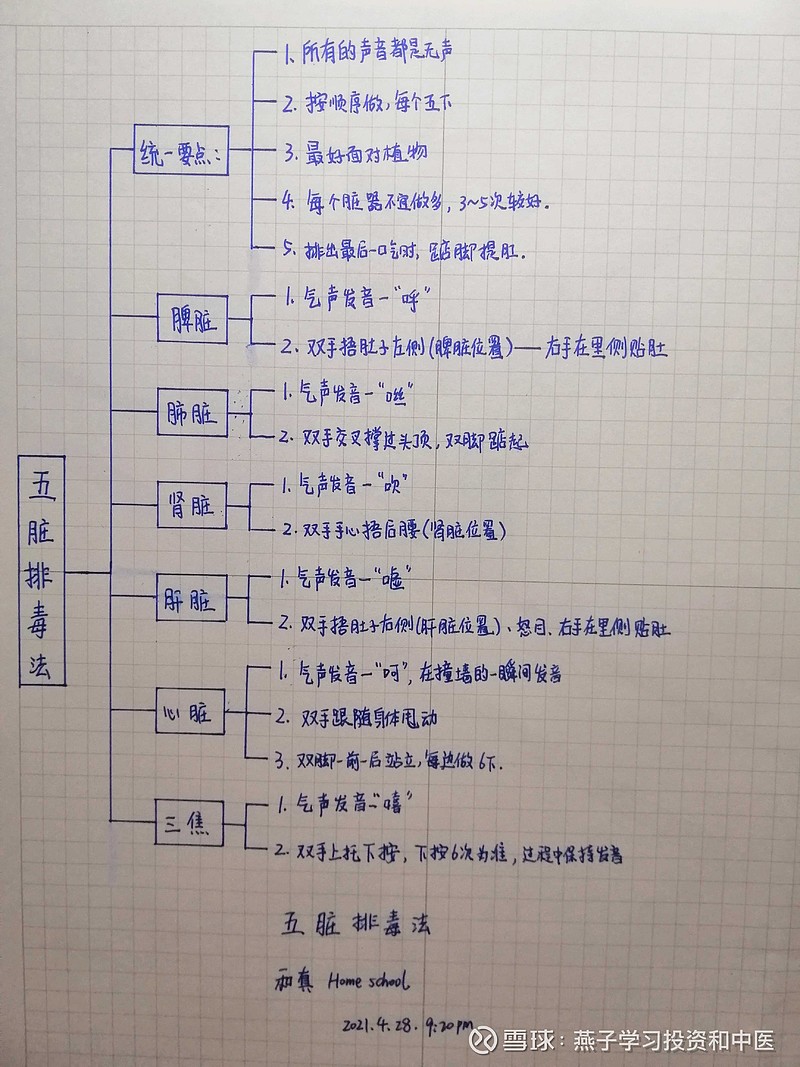 1. 所有的声音都是无声
2. 按顺序做，每个五下
统一要点：
3. 最好面对植物
4. 每个脏器不宜做多，3~5次较好。
5. 排出最后一口气时，踮脚提肛。
脾脏
1. 气声发音—“呼”
2. 双手捂肚子左侧(脾脏位置)—右手在里侧贴肚
肺脏
1. 气声发音—“咝”
2. 双手交叉撑过头顶，双脚踮起
五脏排毒法
肾脏
1. 气声发音—“吹”
2. 双手手心捂后腰(肾脏位置)
肝脏
1. 气声发音—“嘘”
2. 双手捂肚子右侧(肝脏位置)、怒目、右手在里侧贴肚
心脏
1. 气声发音—“呵”，在撞墙的一瞬间发音
2. 双手跟随身体甩动
3. 双脚一前一后站立，每边做6下.
三焦
1. 气声发音—“嘻”
2. 双手上托下按，下按6次为准，过程中保持发音
五脏排毒法
和真 Home school
2021.4.28. 9:20pm
雪球：燕子学习投资和中医